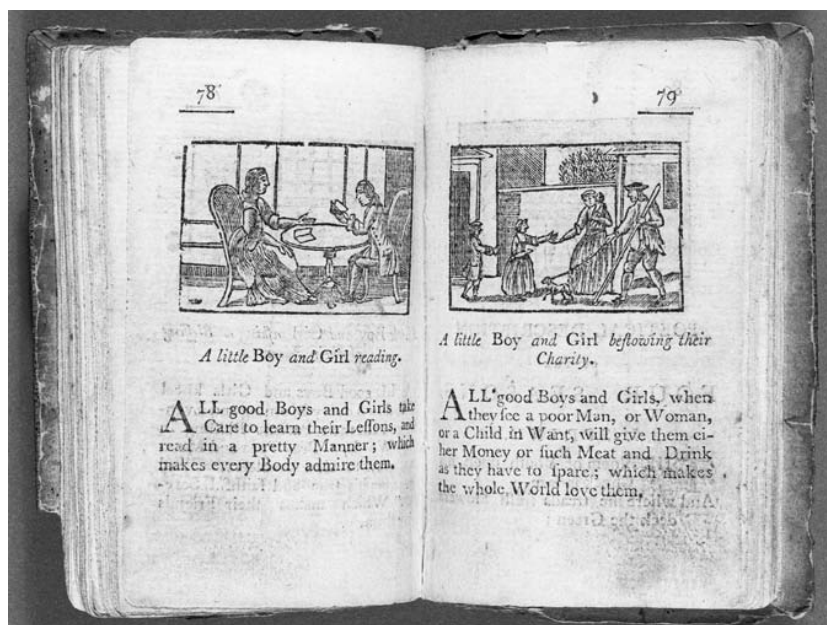 78
A little Boy and Girl reading.
ALL good Boys and Girls take
Care to learn their Leſſons, and
read in a pretty Manner; which
makes every Body admire them.
79
A little Boy and Girl beſtowing their
Charity.
ALL good Boys and Girls, when
they ſee a poor Man, or Woman,
or a Child in Want, will give them ei-
her Money or ſuch Meat and Drink
as they have to ſpare; which makes
the whole World love them.